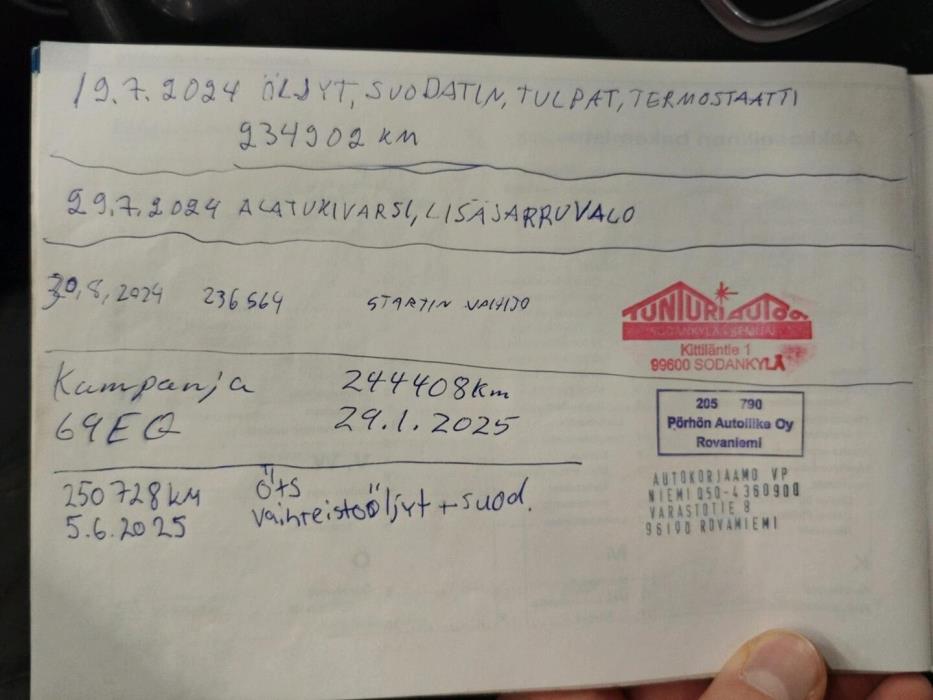 19.7.2024 ÖLJYT, SUODATIN, TULPAT, TERMOSTAATTI
234902 KM
29.7.2024 ALATUKIVARSI, LISÄJARRUVALO
30,8,2024 236564 STARTIN VAIHTO
TUNTURIAUTO
SODANKYLÄ
Kittiläntie 1
99600 SODANKYLÄ
Kampanja 244408 Km
69EQ 29.1.2025
205 790
Pörhön Autoliike Oy
Rovaniemi
250728 KM Ö+S
5.6.2025 vaihteistoöljyt + suod.
AUTOKORJAAMO VP
NIEMI 050-4360900
VARASTOTIE 8
96100 ROVANIEMI